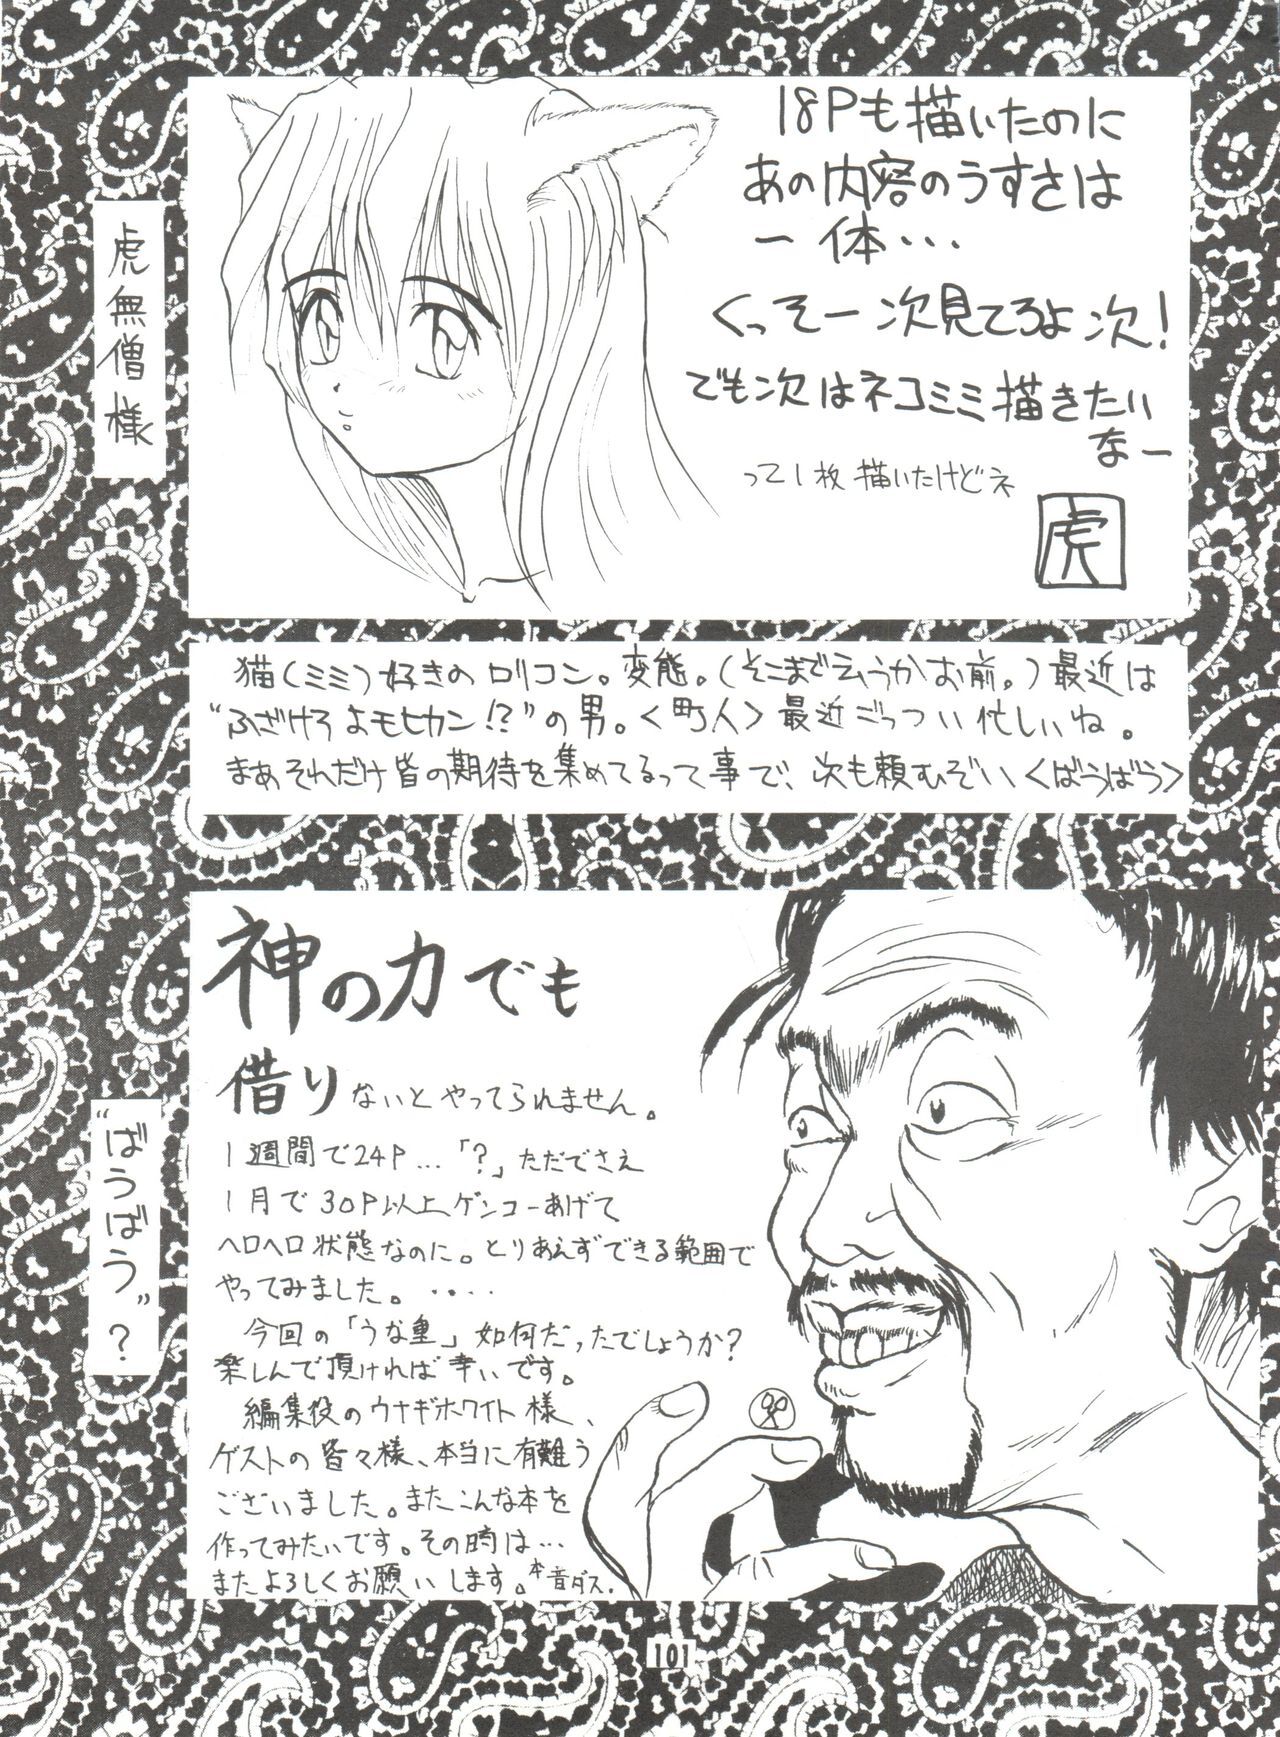 虎無僧様
18Pも描いたのに
あの内容のうすさは
一体・・・
くっそー次見てろよ次!
でも次はネコミミ描きたい
なー
って1枚描いたけどネ
虎
猫(ミミ)好きのロリコン。変態。(そこまで云うかお前。)最近は
“ふざけろよモヒカン!?”の男。<町人>最近ごっつい忙しいね。
まあそれだけ皆の期待を集めてるって事で、次も頼むぞい<ばうばう>
“ばうばう”?
神の力でも
借りないとやってられません。
1週間で24P…「?」ただでさえ
1月で30P以上ゲンコーあげて
ヘロヘロ状態なのに。とりあえずできる範囲で
やってみました。・・・・
今回の「うな重」如何だったでしょうか?
楽しんで頂ければ幸いです。
編集役のウナギホワイト様、
ゲストの皆々様、本当に有難う
ございました。またこんな本を
作ってみたいです。その時は…
またよろしくお願いします。本音ダス.
101